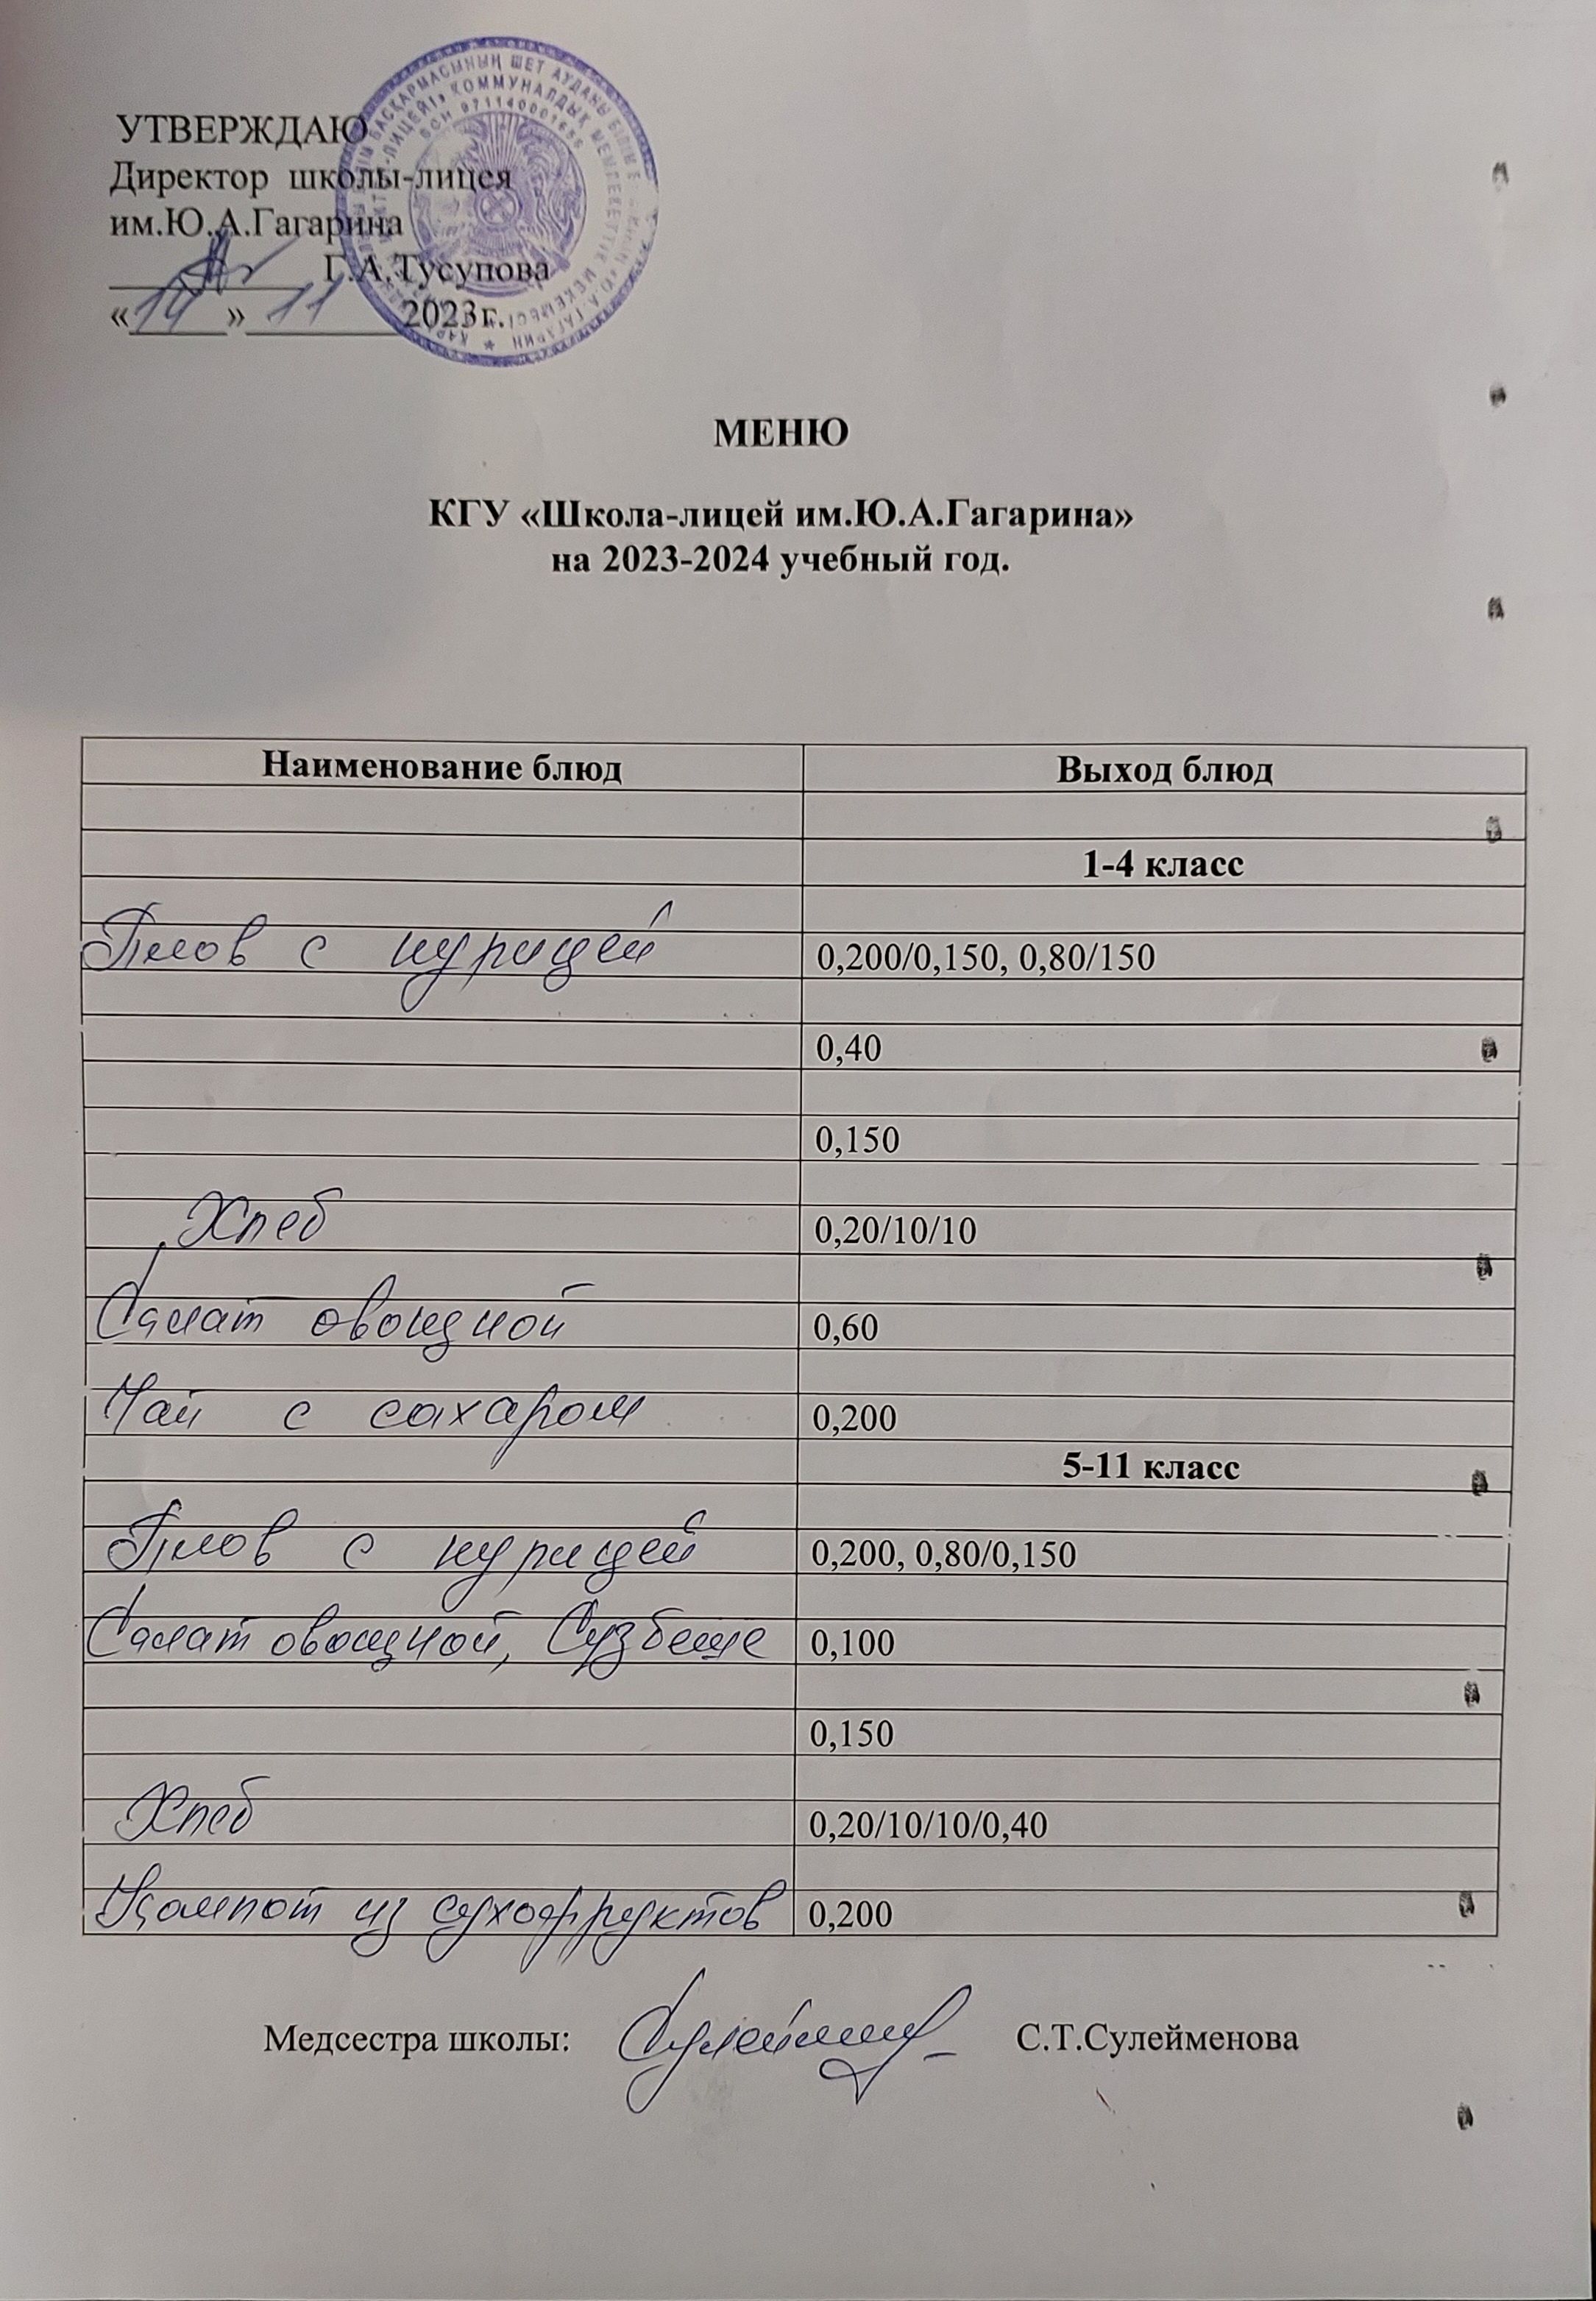 УТВЕРЖДАЮ
Директор школы-лицея
им.Ю.А.Гагарина
Г.А.Тусупова
«14» 11 2023г.
МЕНЮ
КГУ «Школа-лицей им.Ю.А.Гагарина»
на 2023-2024 учебный год.
Наименование блюд Выход блюд
1-4 класс
Плов с курицей 0,200/0,150, 0,80/150
0,40
0,150
Хлеб 0,20/10/10
Салат овощной 0,60
Чай с сахаром 0,200
5-11 класс
Плов с курицей 0,200, 0,80/0,150
Салат овощной, 0,100
0,150
Хлеб 0,20/10/10/0,40
Компот из сухофруктов 0,200
Медсестра школы: С.Т.Сулейменова